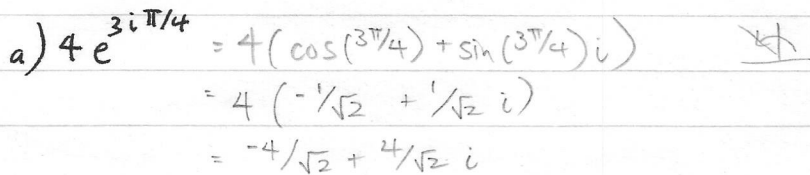 a) 4 e^{3iπ/4} = 4(cos(3π/4) + sin(3π/4) i)
= 4 (-1/√2 + 1/√2 i)
= -4/√2 + 4/√2 i